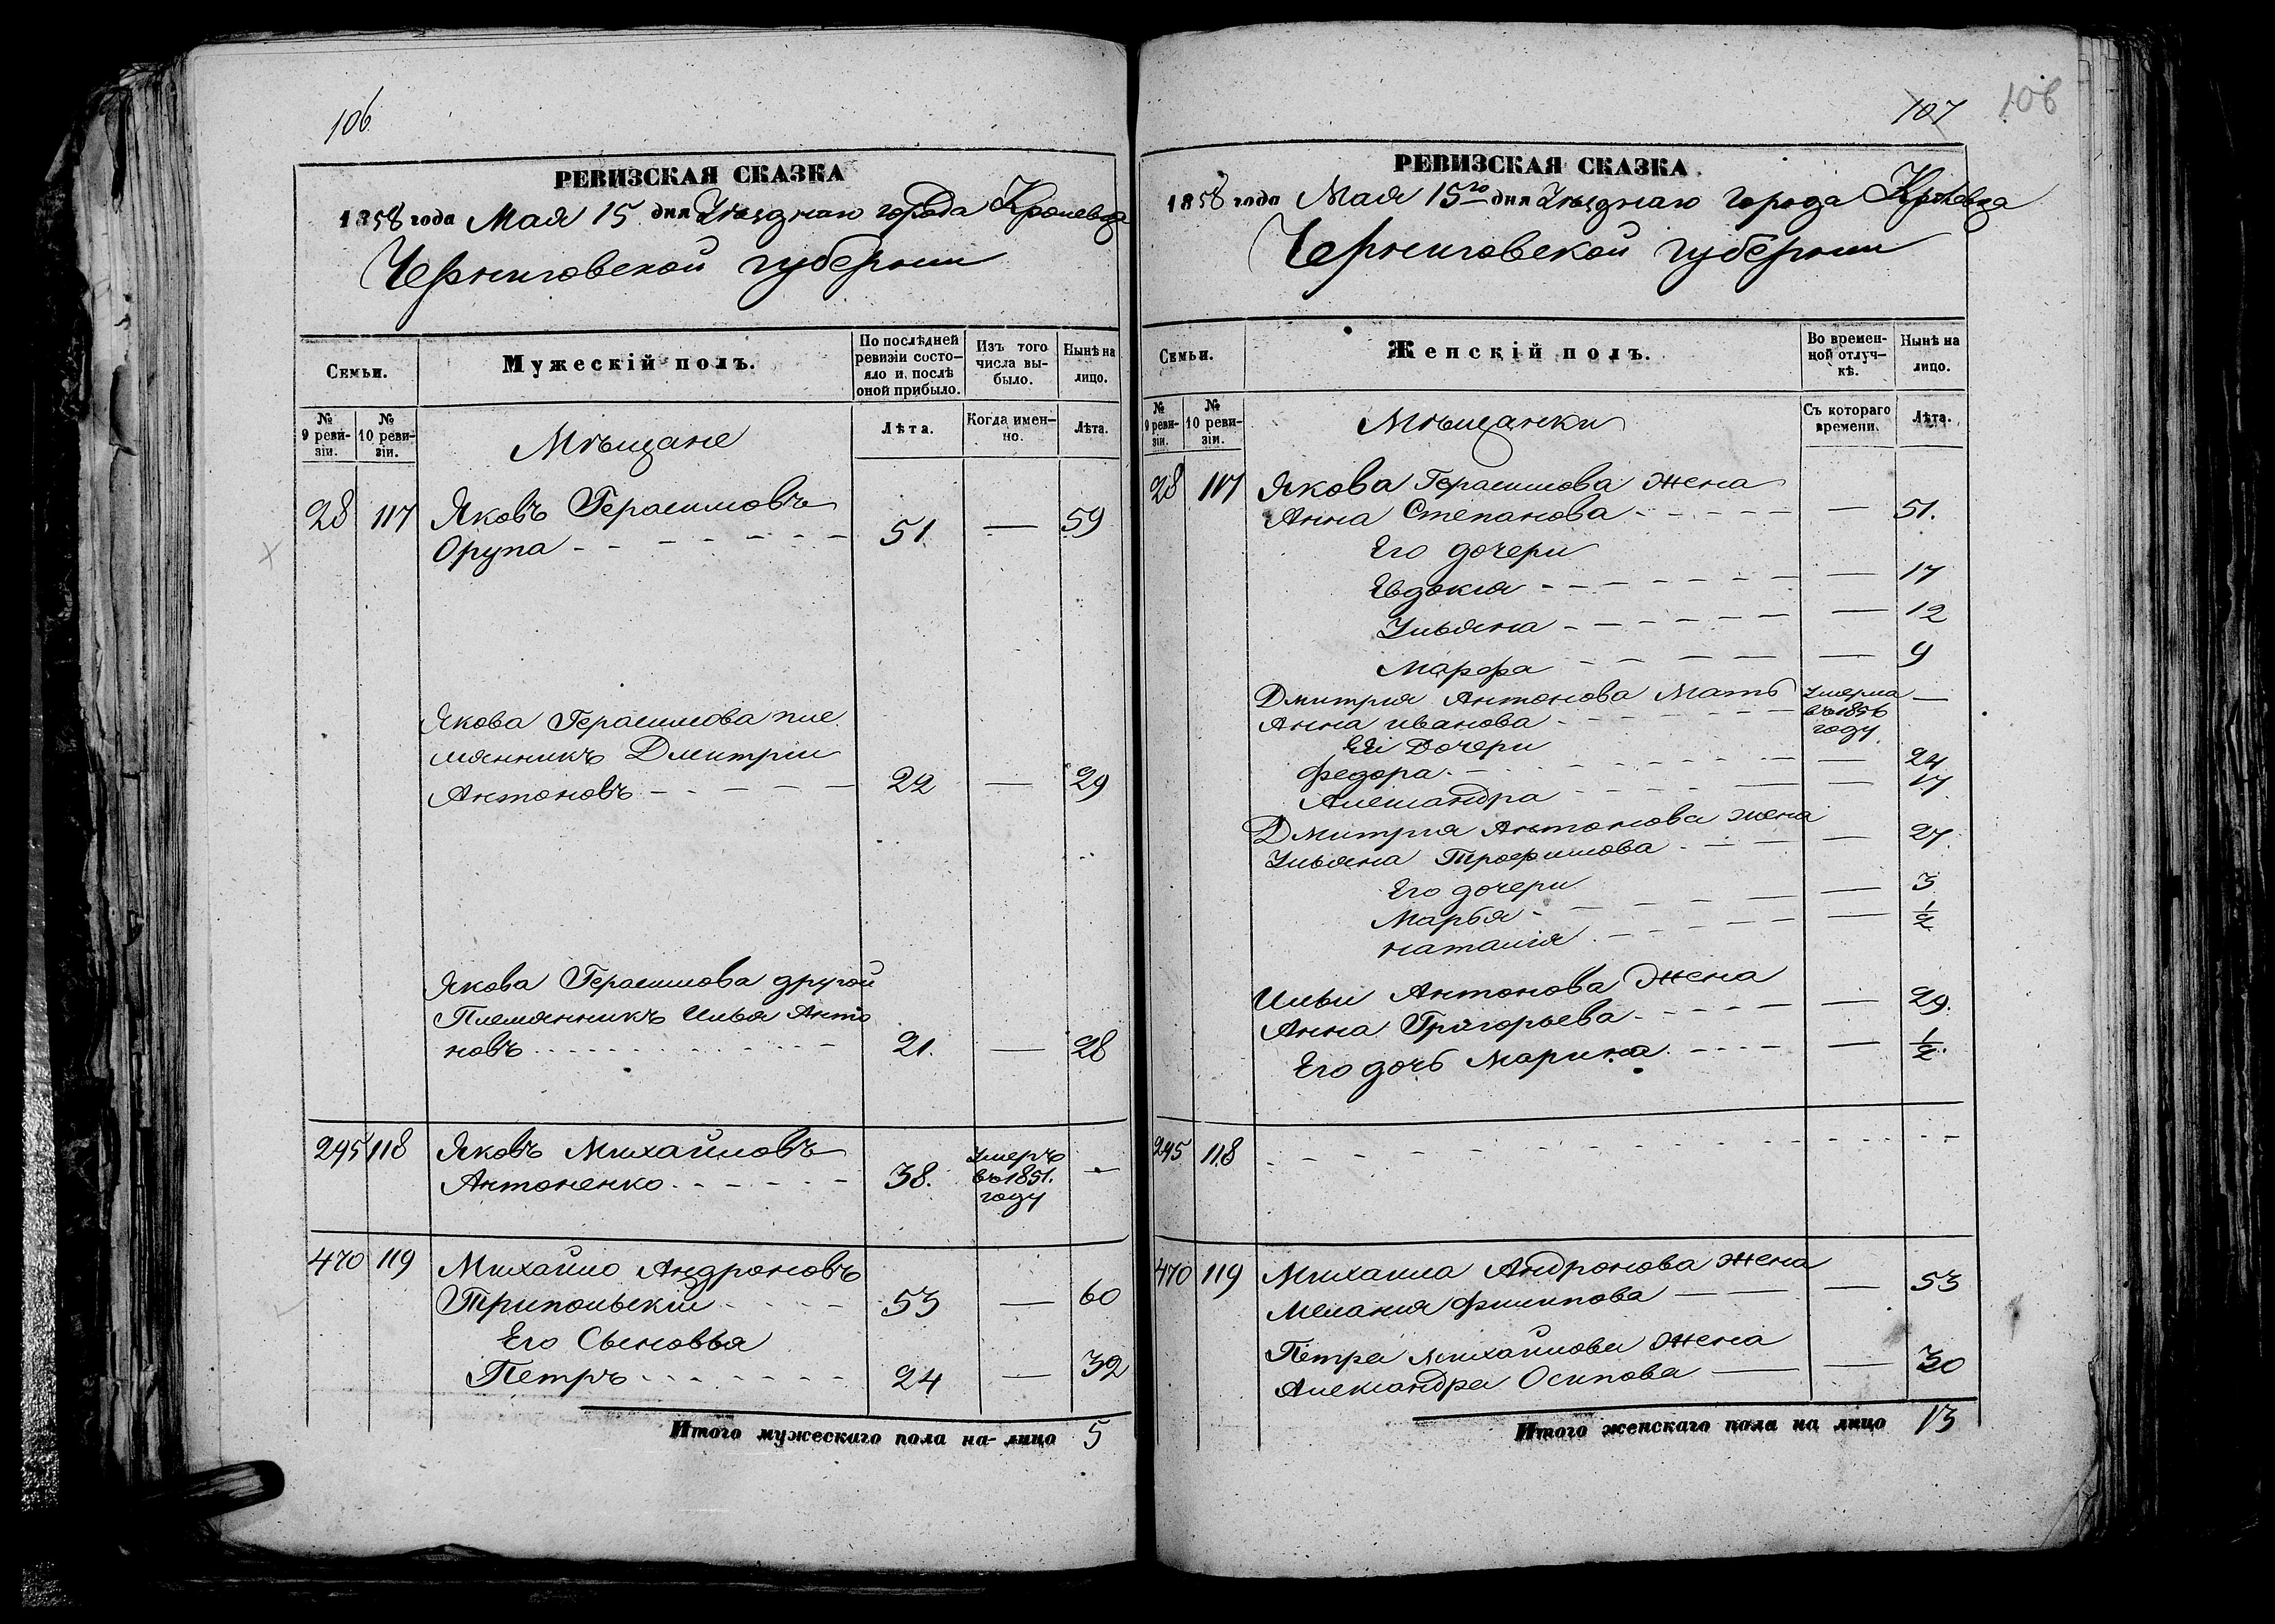 106
РЕВИЗСКАЯ СКАЗКА
1858 года Мая 15 дня Уѣзднаго города Кролевца
Черниговской губерніи
Семьи.
Мужескій полъ.
По послѣдней ревизіи состояло и послѣ оной прибыло.
Изъ того числа выбыло.
Нынѣ на лицо.
№ 9 ревизіи.
№ 10 ревизіи.
Мѣщане
Лѣта.
Когда именно.
Лѣта.
28 117 Яковъ Герасимовъ
Орупа 51. — 59
Якова Герасимова пле
мянникъ Дмитріи
Антоновъ 22 — 29
Якова Герасимова другой
Племянникъ Илья Анто
новъ 21. — 28
245 118 Яковъ Михайловъ
Антоненко 38. Умеръ въ 1851. году —
470 119 Михайло Андроновъ
Трипольскій 53 — 60
Его Сыновья
Петръ 24 — 32
Итого мужескаго пола на-лицо 5
107
108
РЕВИЗСКАЯ СКАЗКА.
1858 года Мая 15го дня Уѣзднаго города Кролевца
Черниговской губерніи
Семьи.
Женскій полъ.
Во временной отлучкѣ.
Нынѣ на лицо.
№ 9 ревизіи.
№ 10 ревизіи.
Мѣщанки
Съ котораго времени.
Лѣта.
28 117 Якова Герасимова жена
Анна Степанова — 51.
Его дочери
Евдокія — 17
Ульяна — 12
Марфа — 9
Дмитрія Антонова Мать
Анна иванова Умерла въ 1856 году —
Ея Дочери
Федора — 24
Александра — 17
Дмитрія Антонова жена
Ульяна Трофимова — 27.
Его дочери
Марья — 3
наталія — 1/2
Ильи Антонова Жена
Анна Григорьева — 29.
Его дочь Марина — 1/2.
245 118
470 119 Михаила Андронова жена
Мелания Филипова — 53
Петра Михайлова Жена
Александра Осипова — 30
Итого женскаго пола на лицо 13